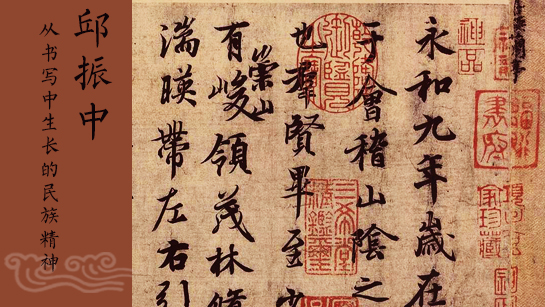 邱振中
从书写中生长的民族精神
神品
永和九年歲在
于會稽山陰之
也羣賢畢至少
崇山
有峻領茂林脩
湍暎帶左右引